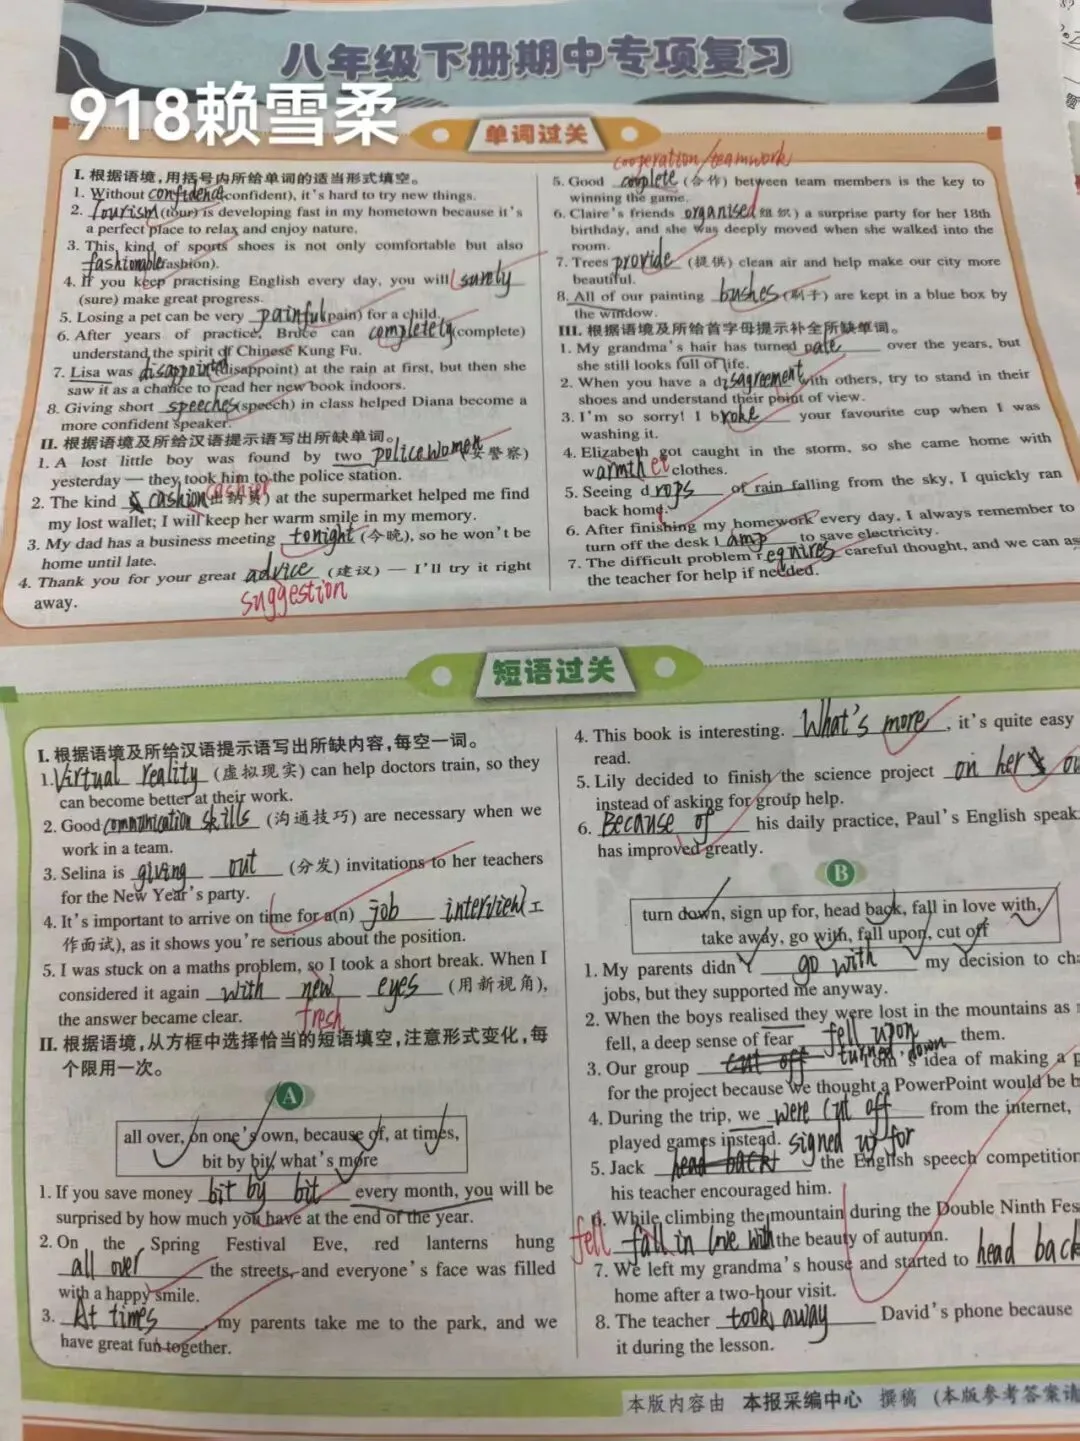 八年级下册期中专项复习
918赖雪柔
单词过关
I. 根据语境,用括号内所给单词的适当形式填空。
1. Without confidence (confident), it's hard to try new things.
2. Tourism (tour) is developing fast in my hometown because it's
a perfect place to relax and enjoy nature.
3. This kind of sports shoes is not only comfortable but also
fashionable (fashion).
4. If you keep practising English every day, you will surely
(sure) make great progress.
5. Losing a pet can be very painful (pain) for a child.
6. After years of practice, Bruce can completely (complete)
understand the spirit of Chinese Kung Fu.
7. Lisa was disappointed (disappoint) at the rain at first, but then she
saw it as a chance to read her new book indoors.
8. Giving short speeches (speech) in class helped Diana become a
more confident speaker.
II. 根据语境及所给汉语提示语写出所缺单词。
1. A lost little boy was found by two policewomen (女警察)
yesterday — they took him to the police station.
cashier
2. The kind cashion (出纳员) at the supermarket helped me find
my lost wallet; I will keep her warm smile in my memory.
3. My dad has a business meeting tonight (今晚), so he won't be
home until late.
4. Thank you for your great advice (建议) — I'll try it right
away.
suggestion
cooperation/teamwork
5. Good complete (合作) between team members is the key to
winning the game.
6. Claire's friends organised (组织) a surprise party for her 18th
birthday, and she was deeply moved when she walked into the
room.
7. Trees provide (提供) clean air and help make our city more
beautiful.
8. All of our painting bushes (刷子) are kept in a blue box by
the window.
III. 根据语境及所给首字母提示补全所缺单词。
1. My grandma's hair has turned pale over the years, but
she still looks full of life.
2. When you have a disagreement with others, try to stand in their
shoes and understand their point of view.
3. I'm so sorry! I broke your favourite cup when I was
washing it.
4. Elizabeth got caught in the storm, so she came home with
warmth et clothes.
5. Seeing drops of rain falling from the sky, I quickly ran
back home.
6. After finishing my homework every day, I always remember to
turn off the desk lamp to save electricity.
7. The difficult problem requires careful thought, and we can as
the teacher for help if needed.
短语过关
I. 根据语境及所给汉语提示语写出所缺内容,每空一词。
1. Virtual reality (虚拟现实) can help doctors train, so they
can become better at their work.
2. Good communication skills (沟通技巧) are necessary when we
work in a team.
3. Selina is giving out (分发) invitations to her teachers
for the New Year's party.
4. It's important to arrive on time for a(n) job interview (工
作面试), as it shows you're serious about the position.
5. I was stuck on a maths problem, so I took a short break. When I
considered it again with new eyes (用新视角),
the answer became clear.
fresh
II. 根据语境,从方框中选择恰当的短语填空,注意形式变化,每
个限用一次。
A
all over, on one's own, because of, at times,
bit by bit, what's more
1. If you save money bit by bit every month, you will be
surprised by how much you have at the end of the year.
2. On the Spring Festival Eve, red lanterns hung
all over the streets, and everyone's face was filled
with a happy smile.
3. At times, my parents take me to the park, and we
have great fun together.
4. This book is interesting. What's more, it's quite easy
read.
5. Lily decided to finish the science project on her ow
instead of asking for group help.
6. Because of his daily practice, Paul's English speak
has improved greatly.
B
turn down, sign up for, head back, fall in love with,
take away, go with, fall upon, cut off
1. My parents didn't go with my decision to cha
jobs, but they supported me anyway.
2. When the boys realised they were lost in the mountains as
fell, a deep sense of fear fell upon them.
3. Our group cut off turned down Tom's idea of making a p
for the project because we thought a PowerPoint would be b
4. During the trip, we were cut off from the internet,
played games instead.
signed up for
5. Jack head back the English speech competition
his teacher encouraged him.
6. While climbing the mountain during the Double Ninth Fes
fell fall in love with the beauty of autumn.
7. We left my grandma's house and started to head back
home after a two-hour visit.
8. The teacher took away David's phone because
it during the lesson.
本版内容由 本报采编中心 撰稿 (本版参考答案请